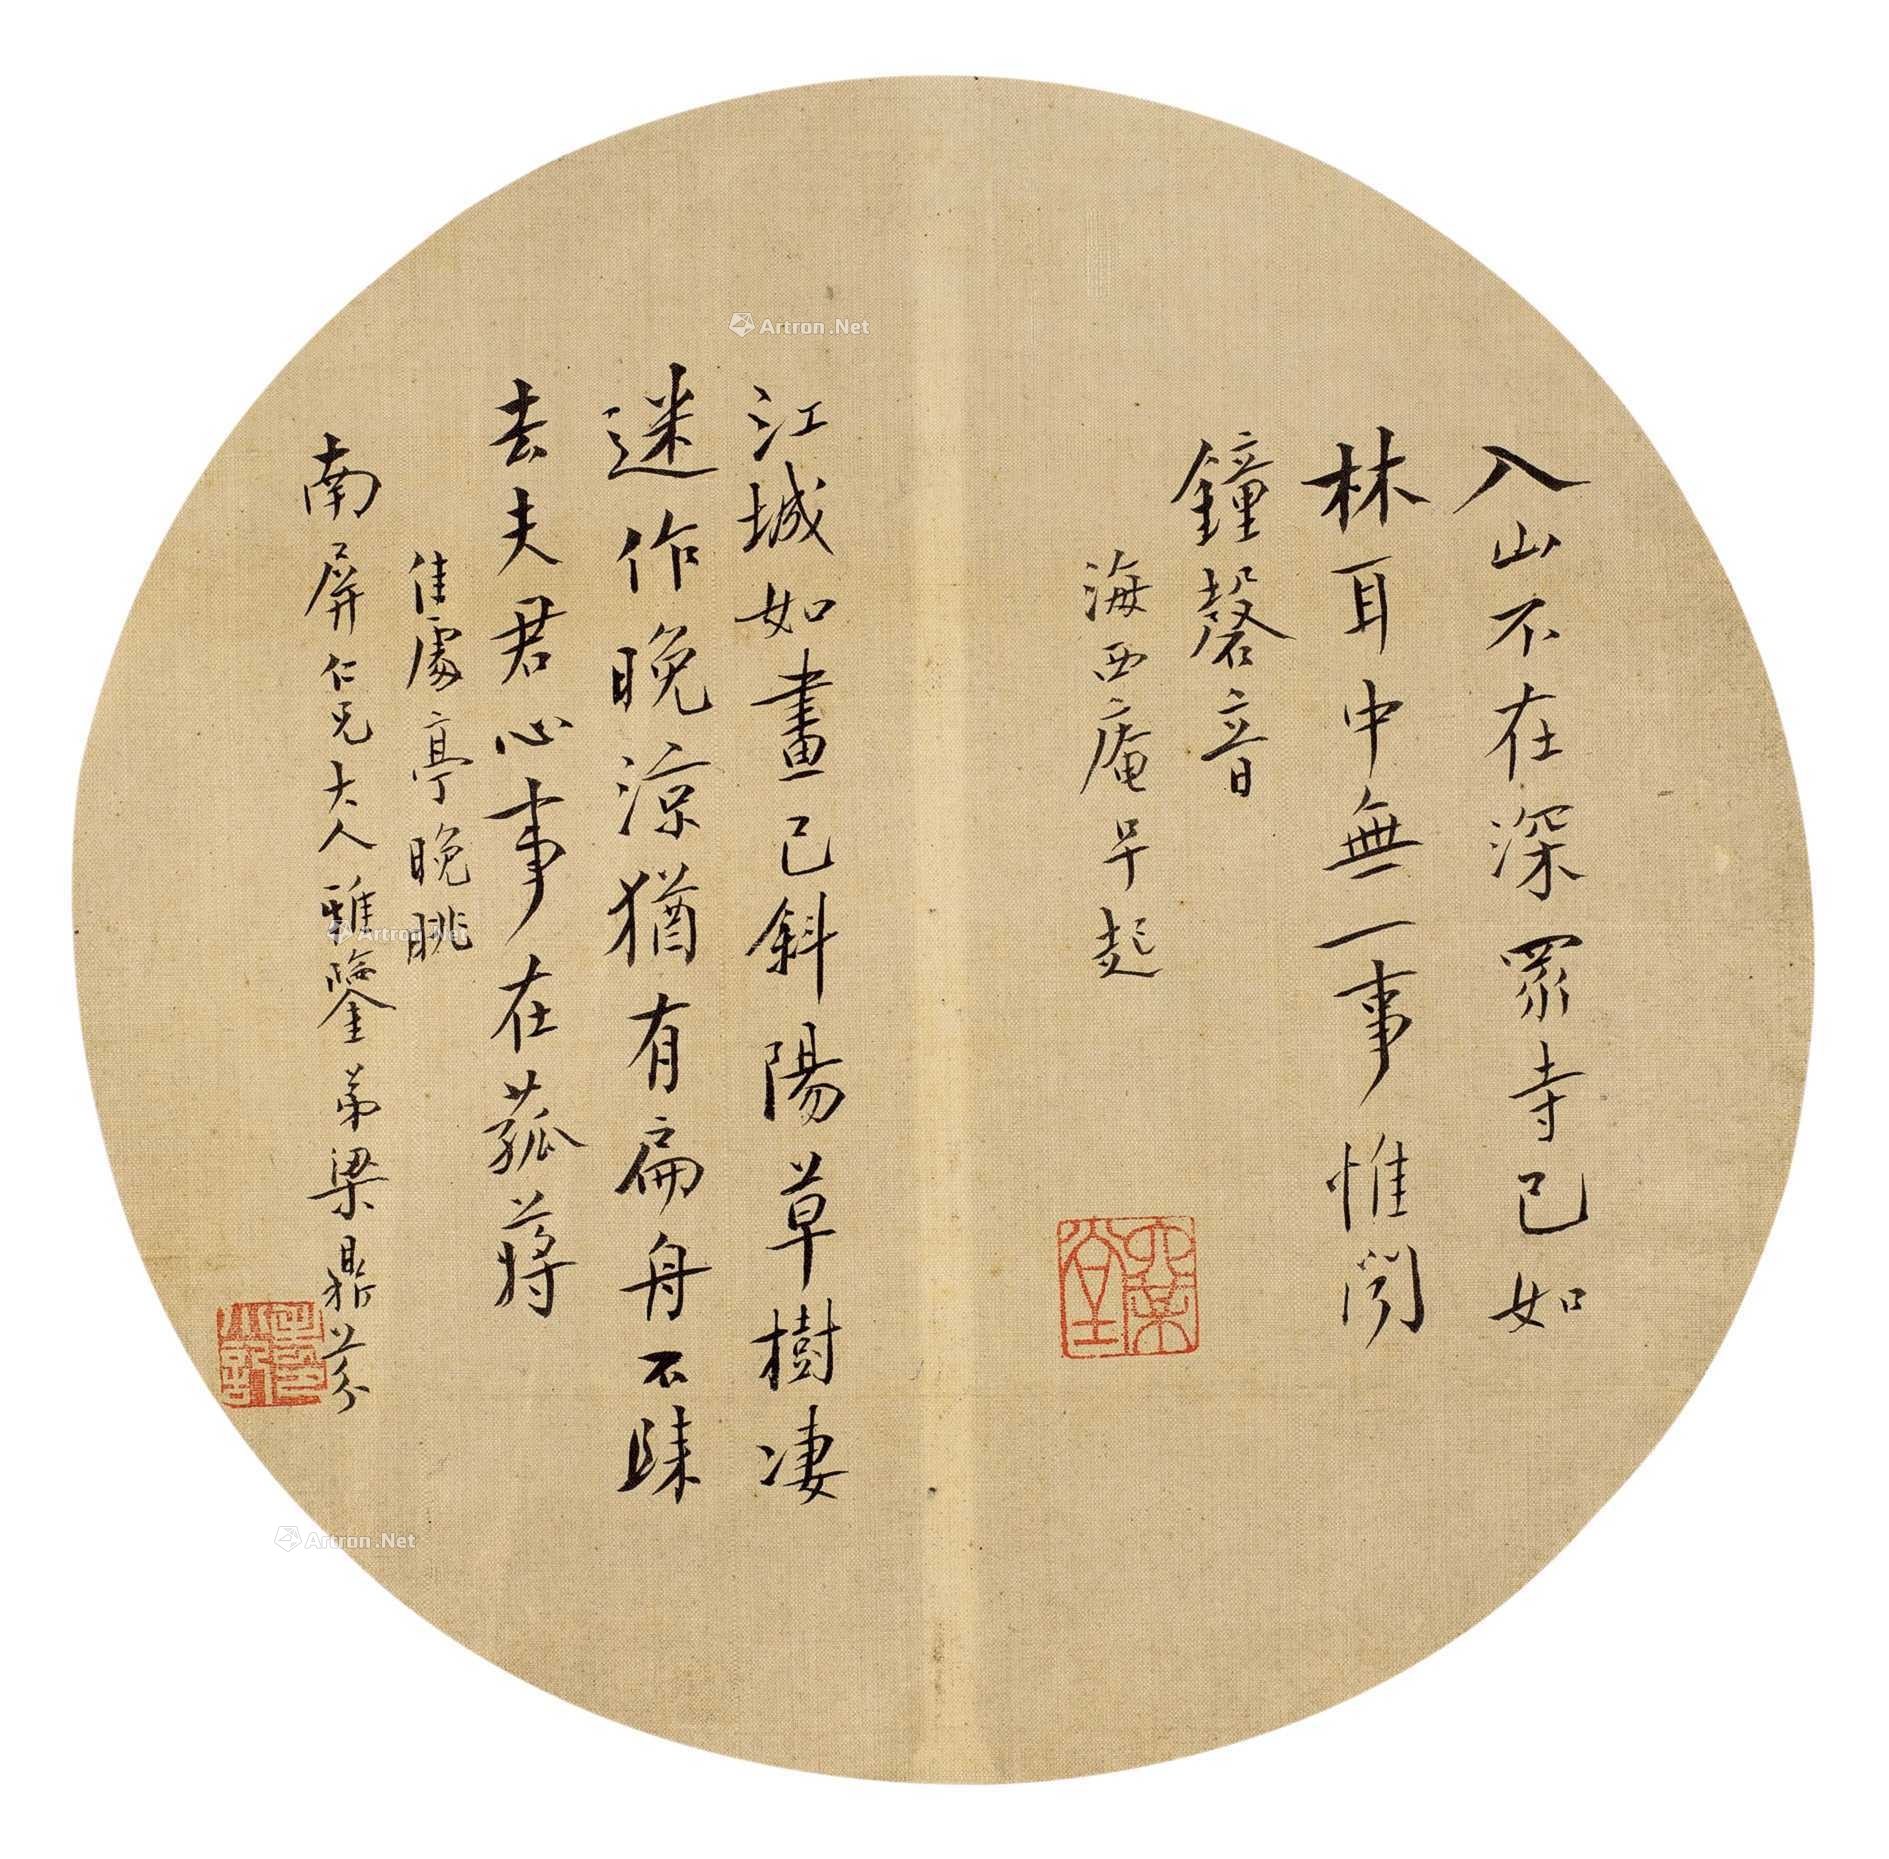 入山不在深眾寺已如
林耳中無一事惟聞
鐘磬音
海西庵早起
江城如畫已斜陽草樹凄
迷作晚涼猶有扁舟不歸
去夫君心事在菰蔣
佳處亭晚眺
南屏仁兄大人雅鑒弟梁鼎芬
Artron.Net
Artron.Net
Artron.Net